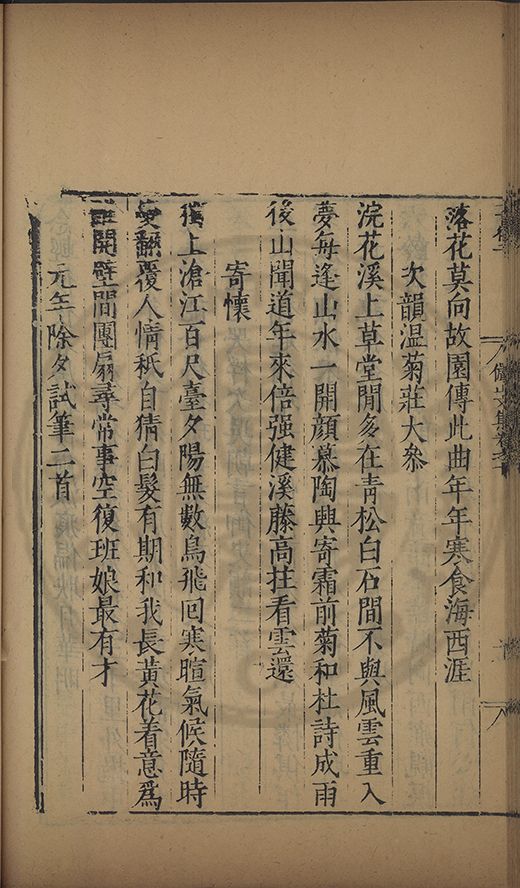 落花莫向故園傳此曲年年寒食海西涯
次韻溫菊莊大參
浣花溪上草堂閒多在青松白石間不與風雲重入
夢每逢山水一開顏慕陶興寄霜前菊和杜詩成雨
後山聞道年來倍强健溪藤高拄看雲還
寄懷
獨上滄江百尺臺夕陽無數鳥飛回寒暄氣候隨時
變翻覆人情秖自猜白髮有期和我長黃花着意為
誰開壁間團扇尋常事空復班娘最有才
元年除夕試筆二首